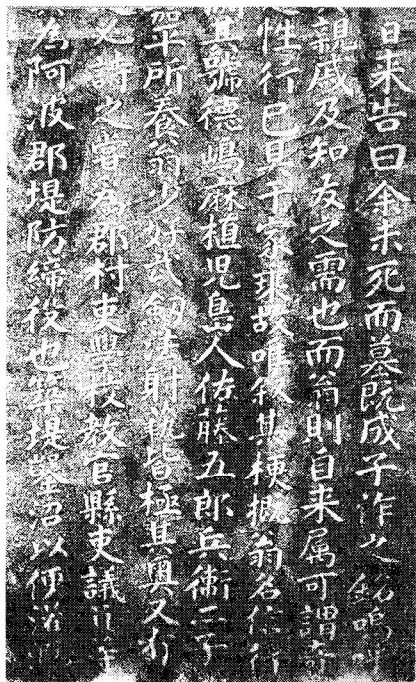 日来告曰余未死而墓既成子作之銘嗚呼
親戚及知友之需也而翁則自来属可謂奇
性行已具于家琜故唯叙其梗概翁名信行
其號德嶋麻植児島人佐藤五郎兵衛三子
平所養翁少好武劔法射藝皆極其奧又
必詩之嘗為郡村吏學校教官縣吏議
為阿波郡堤防締役也築堤鑿沼以便